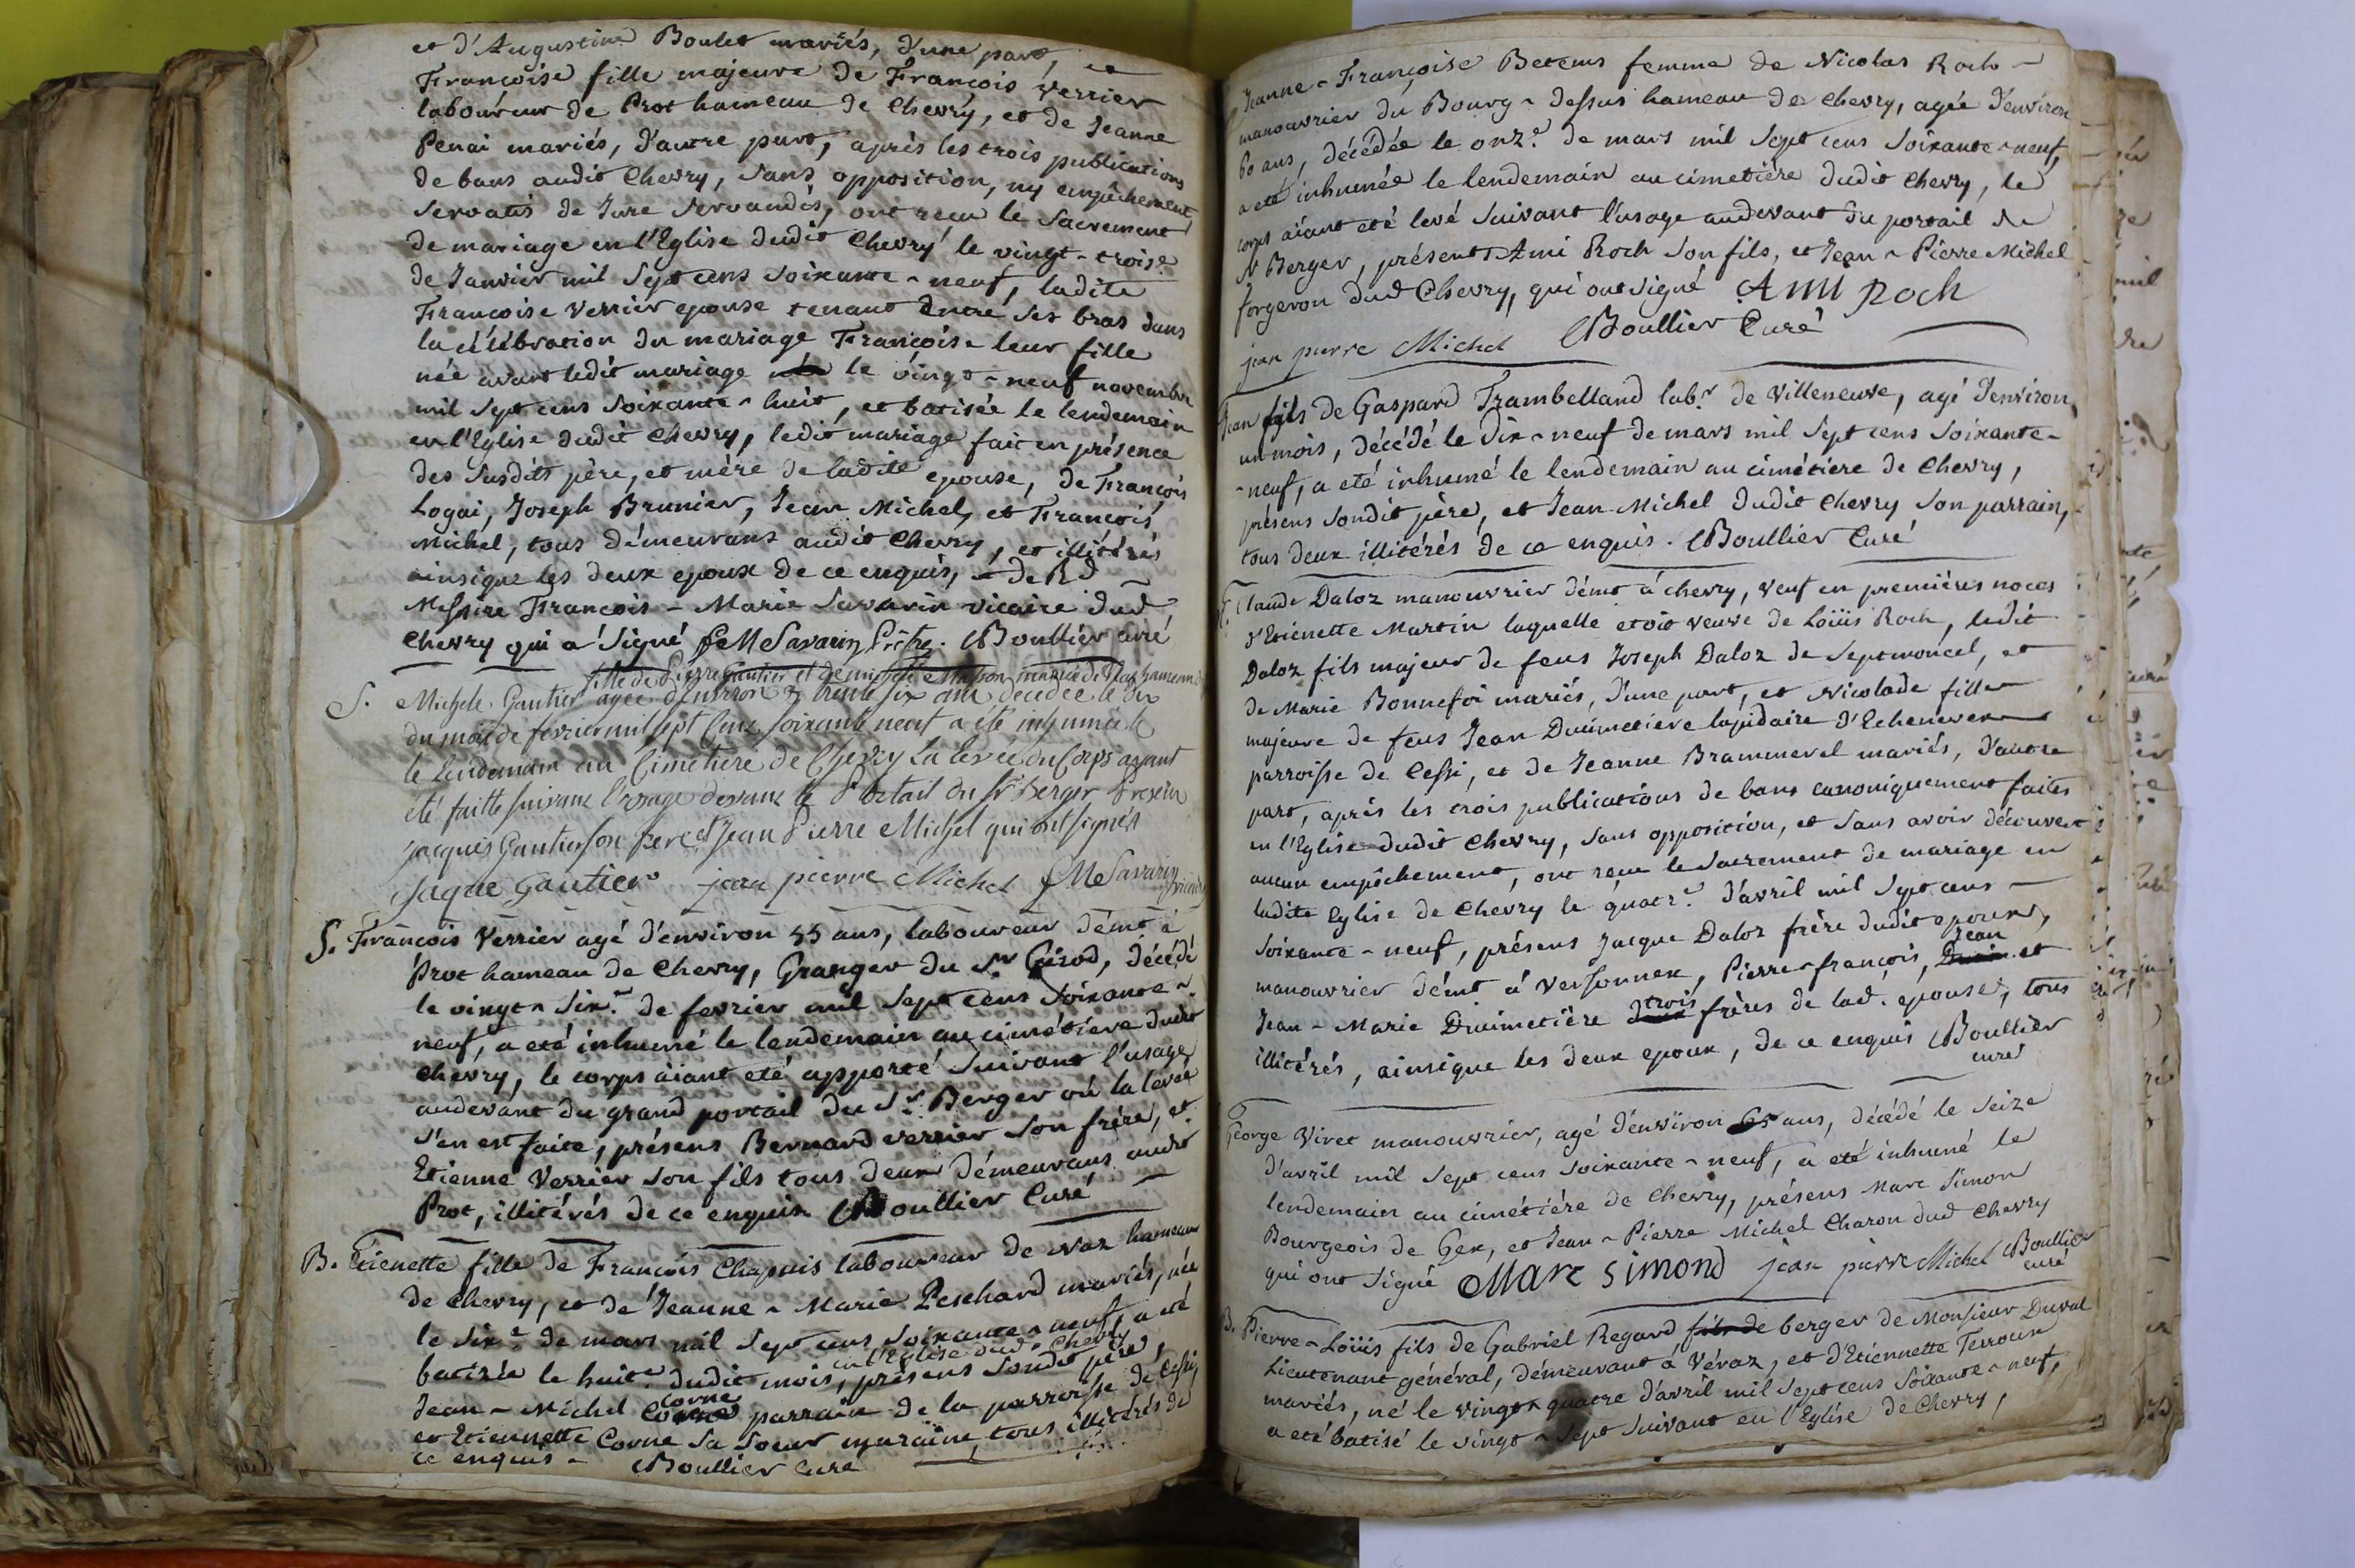 et d'Augustine Boulet mariés, d'une part, et
Françoise fille majeure de François Verrier
laboureur de Prot hameau de Chevry, et de Jeanne
Penai mariés, d'autre part, après les trois publications
de bans audit Chevry, sans opposition, ny empêchement
servatis de Jure servandis, ont reçu le Sacrement
de mariage en l'Eglise dudit Chevry le vingt-troise
de Janvier mil sept cens soixante-neuf, ladite
Françoise Verrier epouse tenant entre ses bras dans
la célébration du mariage Françoise leur fille
née avant ledit mariage le vingt-neuf novembre
mil sept cens soixante-huit, et batisée le lendemain
en l'Eglise dudit Chevry, ledit mariage fait en présence
des susdits père, et mère de ladite epouse, de François
Logai, Joseph Brunier, Jean Michel, et François
Michel, tous démeurans audit Chevry, et illitérés
ainsique les deux epoux de ce enquis, et de Rd
Messire François-Marie Savarin vicaire dud
Chevry qui a signé fM Savarin Prêtre. Boullier curé
fille de Pierre Gautier et de Masson mariée de hameau de
S. Michele Gautier agée d'environ trente six ans decedée le dix
du mois de fevrier mil sept Cens soixante neuf a été inhumée
le lendemain au Cimetière de Chevry La levée du Corps ayant
été faitte suivant l'usage devant le Portail du Sr Berger presens
jacques Gautier son frere et Jean Pierre Michel qui ont signés
Jaque Gautier jean pierre Michel fM Savarin vicaire
S. François Verrier agé d'environ 55 ans, laboureur démt à
Prot hameau de Chevry, Granger du Sr Girod, décédé
le vingt-six.e de fevrier mil sept cens soixante-
neuf, a eté inhumé le lendemain au cimétière dudit
Chevry, le corps aïant eté apporté suivant l'usage
audevant du grand portail du Sr Berger où la levée
s'en est faite, présens Bernard verrier son frère, et
Etienne Verrier son fils tous deux démeurans audit
Prot, illitérés de ce enquis Boullier Curé
B. Etienette fille de François Chapuis laboureur de Naz hameau
de Chevry, et de Jeanne-Marie Peschard mariés, née
le six.e de mars mil sept cens soixante-neuf, a eté
en l'Eglise dud. Chevry
batisée le huit.e dudit mois, présens sondit père,
Corne
Jean-Michel Corne parrain de la parroisse de Cessi,
et Etiennette Corne sa soeur maraine, tous illitérés de
ce enquis - Boullier Curé
Jeanne-Françoise Betems femme de Nicolas Roch
manouvrier du Bourg-dessus hameau de Chevry, agée d'environ
60 ans, décédée le onz.e de mars mil sept cens soixante-neuf,
a eté inhumée le lendemain au cimetière dudit Chevry, le
corps aïant eté levé suivant l'usage audevant du portail de
Sr Berger, présents Ami Roch son fils, et Jean-Pierre Michel
forgeron dud Chevry, qui ont signé Ami Roch
jean pierre Michel Boullier Curé
Jean fils de Gaspard Trambelland labr. de Villeneuve, agé d'environ
un mois, décédé le dix-neuf de mars mil sept cens soixante-
-neuf, a eté inhumé le lendemain au cimétiere de Chevry,
présens sondit père, et Jean-Michel dudit Chevry son parrain,
tous deux illitérés de ce enquis. Boullier Curé
Claude Daloz manouvrier démt à Chevry, veuf en premières noces
d'Etienette Martin laquelle etoit veuve de Loüis Roch, ledit
Daloz fils majeur de feus Joseph Daloz de Septmoncel, et
de Marie Bonnefoi mariés, d'une part, et Nicolade fille
majeure de feus Jean Duimetiere lapidaire d'Echenevex
parroisse de Cessi, et de Jeanne Brammerel mariés, d'autre
part, après les trois publications de bans canoniquement faites
en l'Eglise dudit Chevry, sans opposition, et sans avoir découvert
aucun empêchement, ont reçu le Sacrement de mariage en
ladite Eglise de Chevry le quatr.e d'avril mil sept cens
soixante-neuf, présens Jacque Daloz frère dudit epoux,
Jean
manouvrier démt à Versonnex, Pierre-françois, et
trois
Jean-Marie Duimetière frères de lad. epouse, tous
illitérés, ainsique les deux epoux, de ce enquis Boullier
curé
George Viret manouvrier, agé d'environ 65 ans, décédé le seize
d'avril mil sept cens soixante-neuf, a eté inhumé le
lendemain au cimétiére de Chevry, présens Marc Simon
Bourgeois de Gex, et Jean-Pierre Michel Charon dud Chevry
qui ont signé Marc Simond jean pierre Michel Boullier
curé
B. Pierre-Loüis fils de Gabriel Regard fils de berger de Monsieur Duval
Lieutenant général, démeurant à Véraz, et d'Etiennette Terroux
mariés, né le vingt-quatre d'avril mil sept cens soixante-neuf,
a eté batisé le vingt-sept suivant en l'Eglise de Chevry,